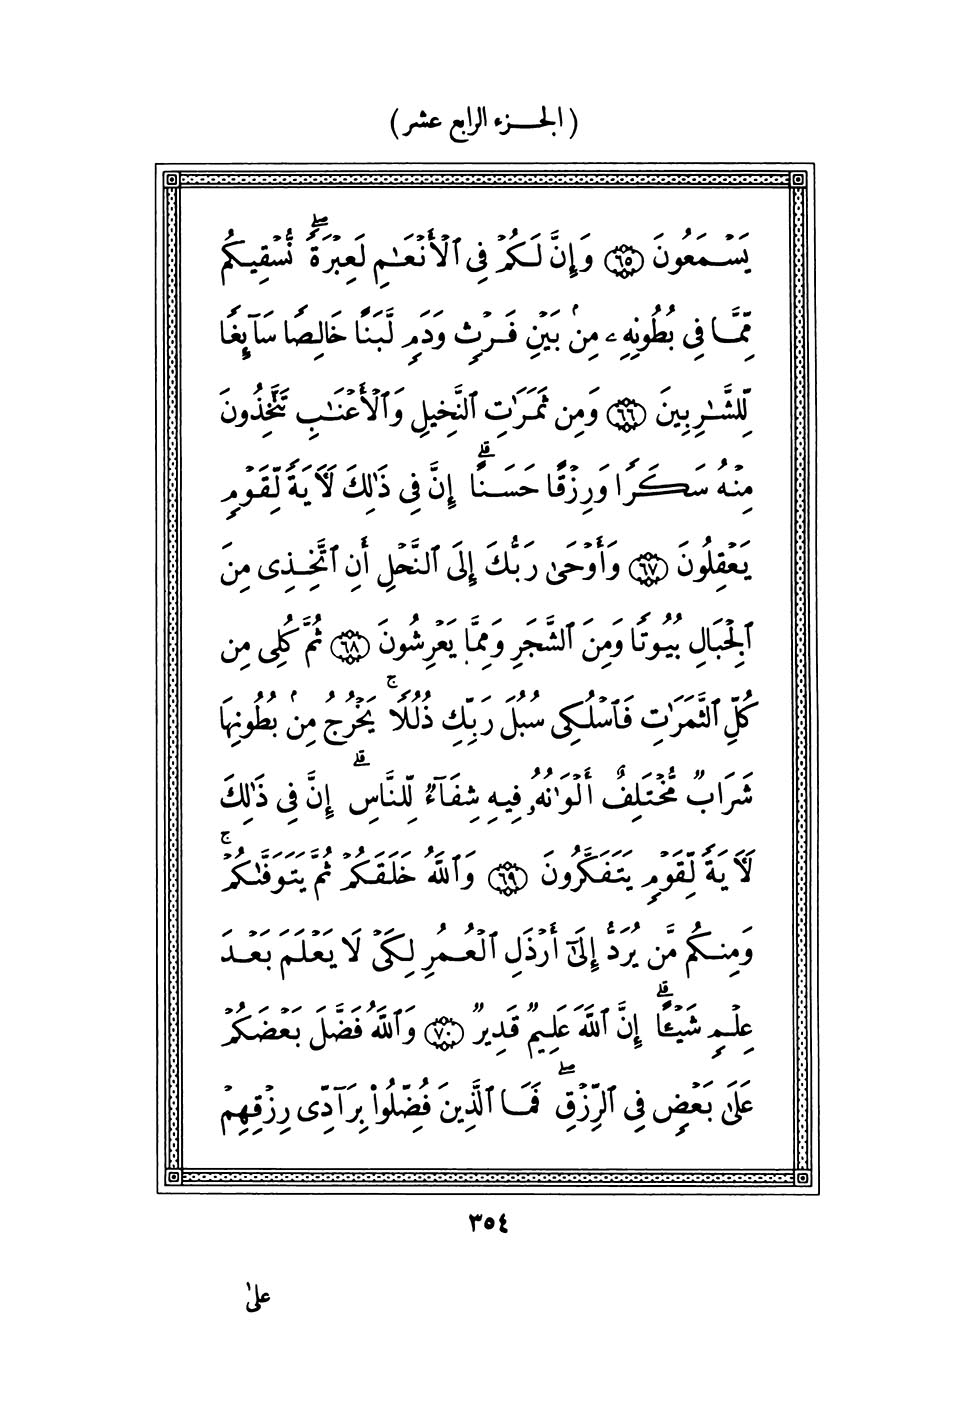 (الجـزء الرابع عشر)
يَسْمَعُونَ ٦٥ وَإِنَّ لَكُمْ فِى ٱلْأَنْعَٰمِ لَعِبْرَةًۖ نُّسْقِيكُم
مِّمَّا فِى بُطُونِهِۦ مِنۢ بَيْنِ فَرْثٍ وَدَمٍ لَّبَنًا خَالِصًا سَآئِغًا
لِّلشَّٰرِبِينَ ٦٦ وَمِن ثَمَرَٰتِ ٱلنَّخِيلِ وَٱلْأَعْنَٰبِ تَتَّخِذُونَ
مِنْهُ سَكَرًا وَرِزْقًا حَسَنًاۗ إِنَّ فِى ذَٰلِكَ لَأَيَةً لِّقَوْمٍ
يَعْقِلُونَ ٦٧ وَأَوْحَىٰ رَبُّكَ إِلَى ٱلنَّحْلِ أَنِ ٱتَّخِذِى مِنَ
ٱلْجِبَالِ بُيُوتًا وَمِنَ ٱلشَّجَرِ وَمِمَّا يَعْرِشُونَ ٦٨ ثُمَّ كُلِى مِن
كُلِّ ٱلثَّمَرَٰتِ فَٱسْلُكِى سُبُلَ رَبِّكِ ذُلُلًاۚ يَخْرُجُ مِنۢ بُطُونِهَا
شَرَابٌ مُّخْتَلِفٌ أَلْوَٰنُهُۥ فِيهِ شِفَآءٌ لِّلنَّاسِۗ إِنَّ فِى ذَٰلِكَ
لَأَيَةً لِّقَوْمٍ يَتَفَكَّرُونَ ٦٩ وَٱللَّهُ خَلَقَكُمْ ثُمَّ يَتَوَفَّىٰكُمْۚ
وَمِنكُم مَّن يُرَدُّ إِلَىٰٓ أَرْذَلِ ٱلْعُمُرِ لِكَىْ لَا يَعْلَمَ بَعْدَ
عِلْمٍ شَيْـًٔاۗ إِنَّ ٱللَّهَ عَلِيمٌ قَدِيرٌ ٧٠ وَٱللَّهُ فَضَّلَ بَعْضَكُمْ
عَلَىٰ بَعْضٍ فِى ٱلرِّزْقِۖ فَمَا ٱلَّذِينَ فُضِّلُوا۟ بِرَآدِّى رِزْقِهِمْ
٣٥٤
علىٰ